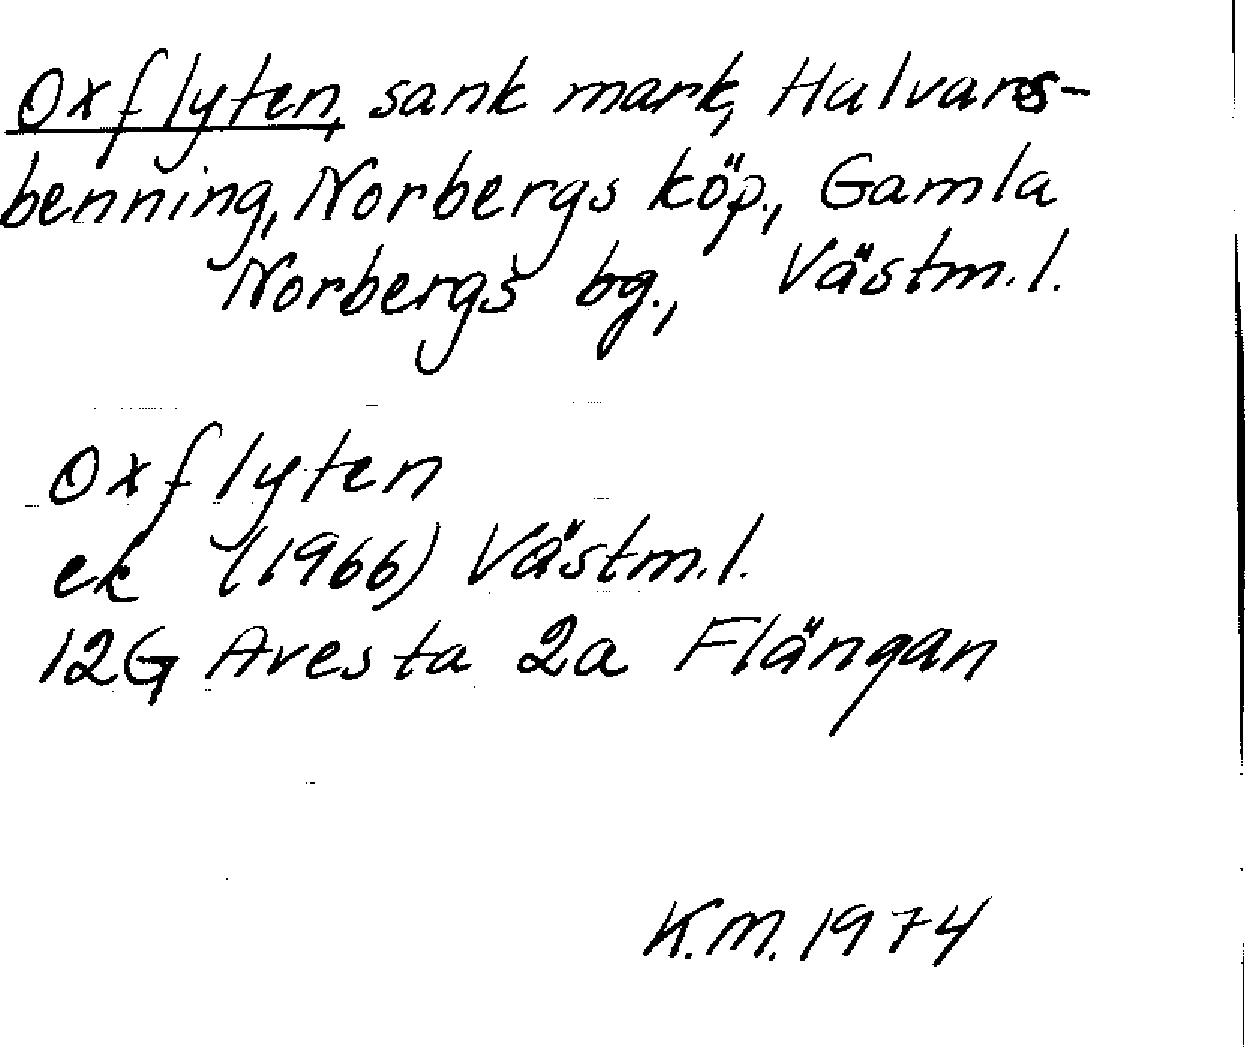 Oxflyten, sank mark, Halvars-
benning, Norbergs köp., Gamla
Norbergs bg., Västm.l.
Oxflyten
ek (1966) Västm.l.
12G Avesta 2a Flängan
K.M. 1974